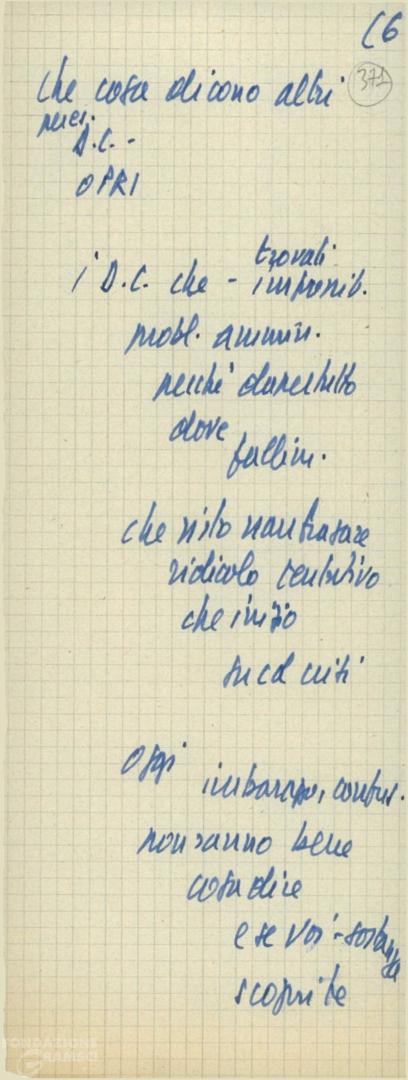 C6
371
che cosa dicono altri
D.C. -
OPRI
trovati
i D.C. che - impossib.
probl. ammin.
perché dapertutto
dove
fallim.
che visto naufragare
ridicolo tentativo
che inizio
oggi imbarazzo, confus.
non sanno bene
cosa dire
e se voi - sostanza
scoprite
FONDAZIONE
GRAMSCI